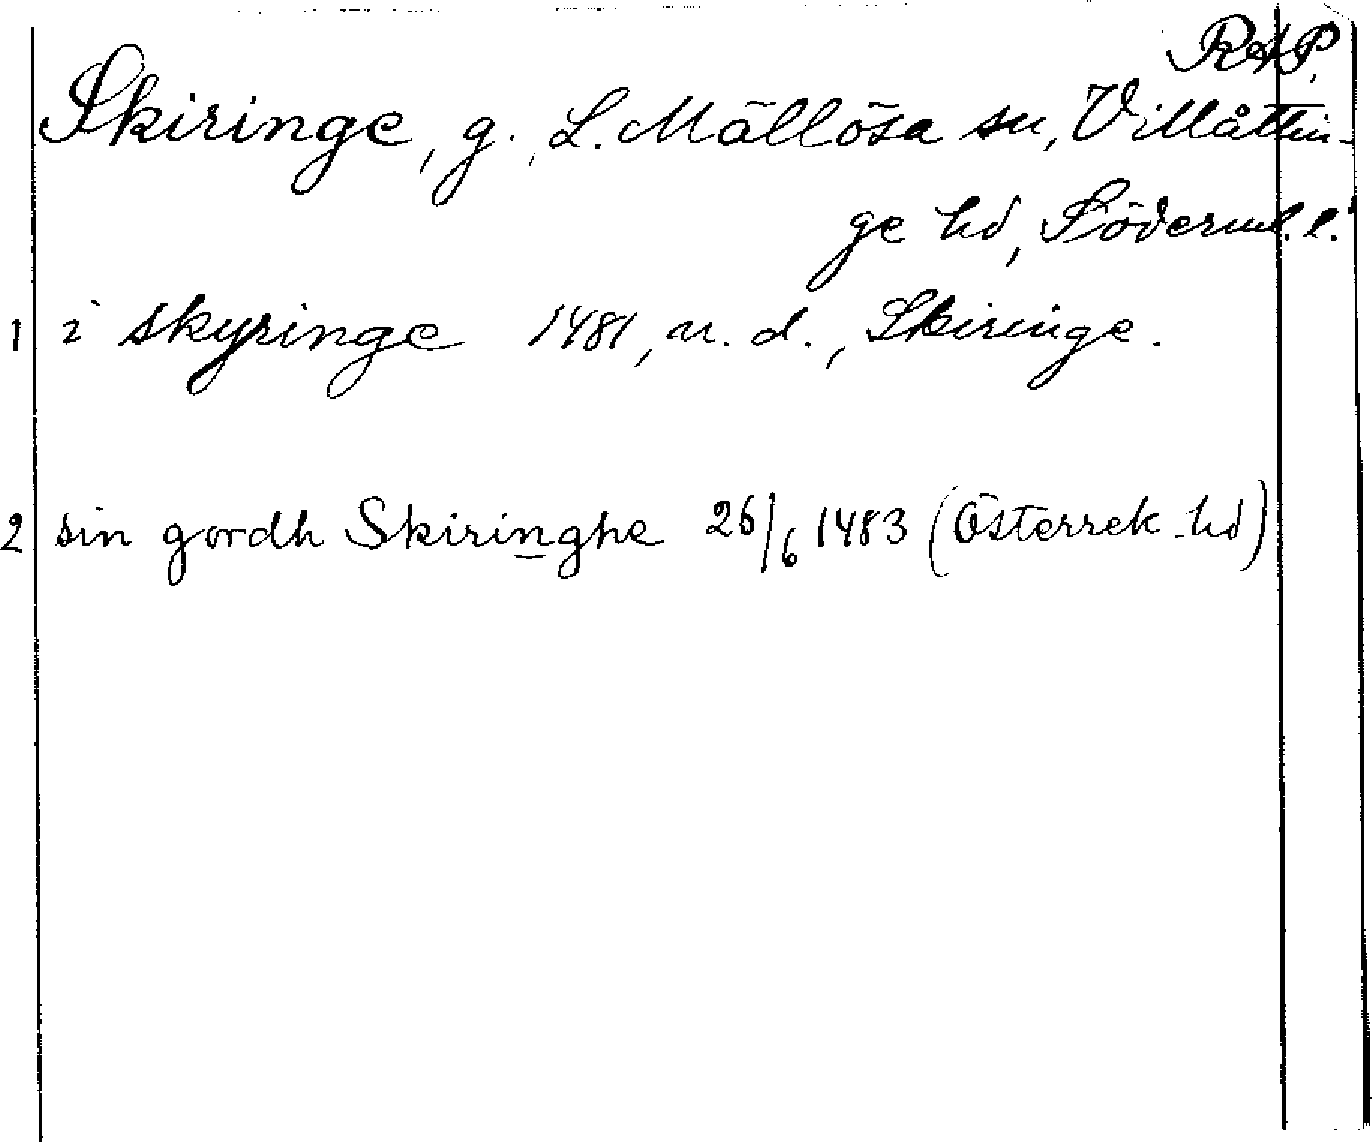 RAP.
Skiringe, g., L. Mällösa sn, Villåttin-
ge hd, Söderml. l.
1 i skyringe 1481, u. d., Skiringe.
2 sin gordh Skiringhe 26/6 1483 (Österrek. hd)